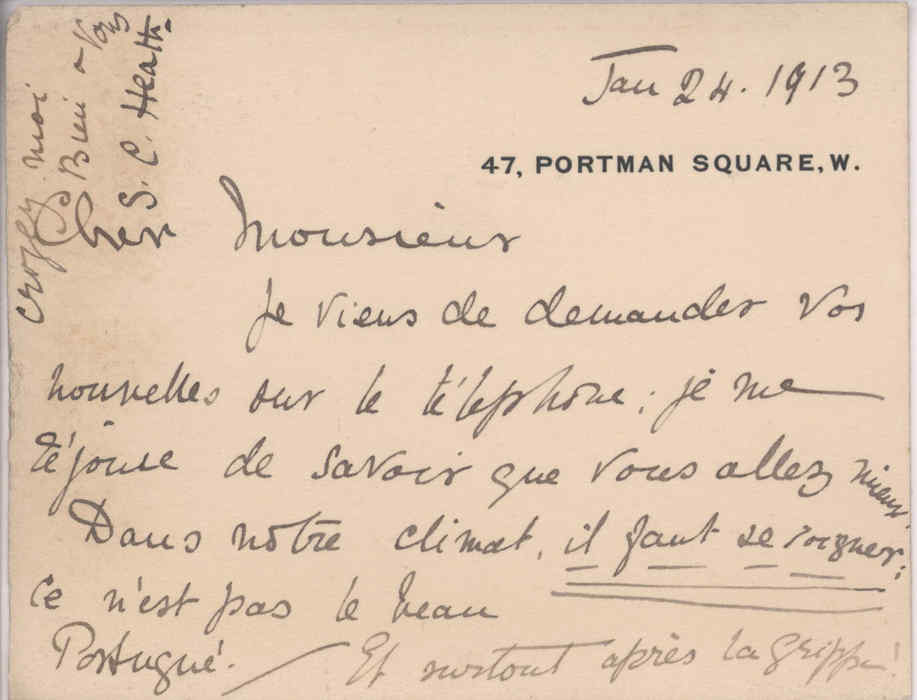 Jan 24. 1913
47, PORTMAN SQUARE, W.
Cher Monsieur
Je viens de demander vos
nouvelles sur le téléphone; je me
réjouie de savoir que vous allez mieux.
Dans notre climat, il faut se soigner;
ce n'est pas le beau
Portugué. Et surtout après la grippe!
croyez moi
Bien à vous
S. C. Heath.